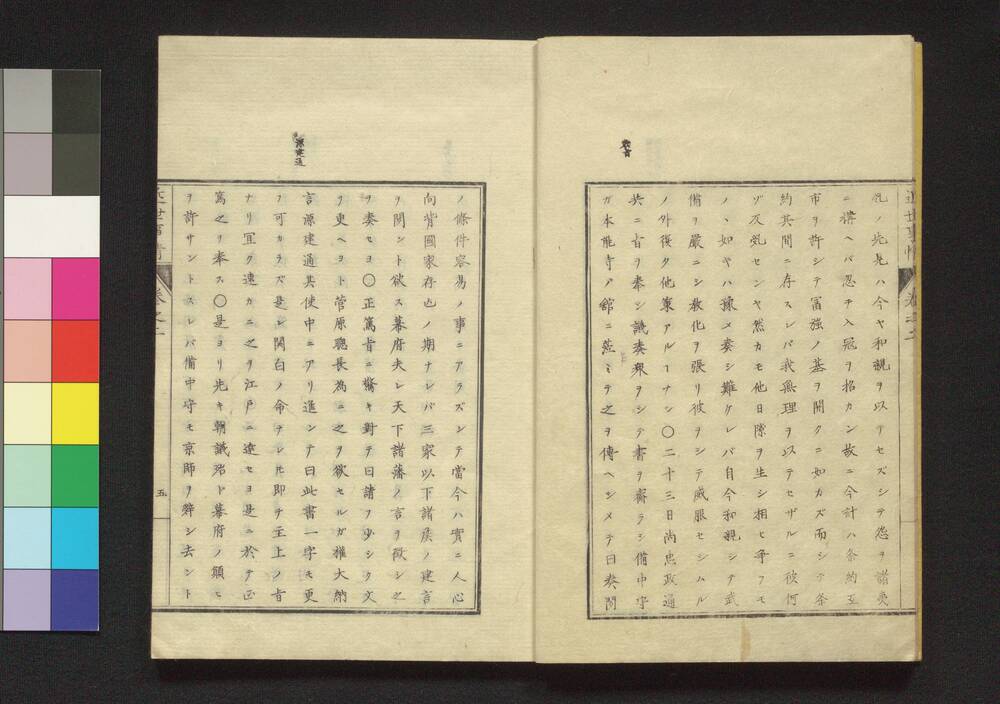 ハ今ヤ和親ヲ以テセズシテ怨ヲ諸夷
ニ構ヘバ忍チ入冠ヲ招カン故ニ今計ハ条約互
市ヲ許シテ冨強ノ基ヲ開クニ如カズ而シテ条
約其間ニ存スレバ我無理ヲ以テセザルニ彼何
ゾ反乱センヤ然カモ他日隙ヲ生シ相ヒ爭フモ
ノヽ如キハ豫メ奏シ難ケレバ自今和親シテ武
備ヲ嚴ニシ教化ヲ張リ彼ヲシテ威服セシムル
ノ外復タ他策アルヿナシ〇二十三日尚忠政通
共ニ旨ヲ奉シ議奏衆ヲシテ書ヲ齎ラシ備中守
ガ本能寺ノ舘ニ莅ミテ之ヲ傳ヘシメテ曰奏聞
ノ條件容易ノ事ニアラズシテ當今ハ實ニ人心
向背國家存亡ノ期ナレバ三家以下諸矦ノ建言
ヲ聞ント欲ス幕府夫レ天下諸藩ノ言ヲ徴シ之
ヲ奏セヨ〇正篤旨ニ驚キ對テ曰請フ少シク文
ヲ更ヘヨト菅原聰長為ニ之ヲ欲セルガ權大納
言源建通其使中ニアリ進ンテ曰此書一字モ更
フ可カラズ是レ関白ノ命ナレ𪜈即チ主上ノ旨
ナリ宜ク速カニ之ヲ江戸ニ達セヨ是ニ於テ正
篤之ヲ奉ス〇是ヨリ先キ朝議殆ド幕府ノ願ヒ
ヲ許サントスレバ備中守モ京師ヲ辞シ去ント
源建通
近世事情
卷之二
五